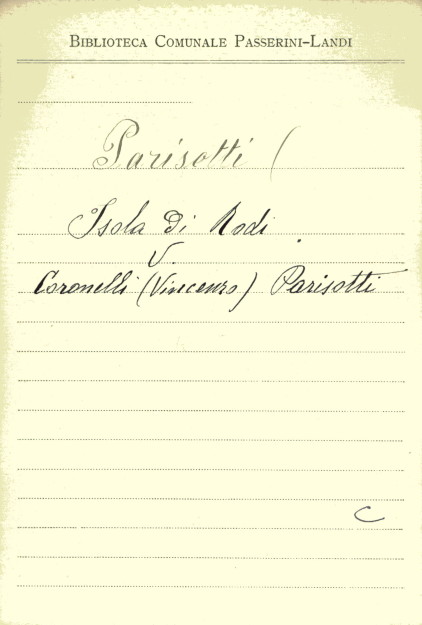 BIBLIOTECA COMUNALE PASSERINI-LANDI
Parisotti (
Isola di Rodi
V.
Coronelli (Vincenzo) Parisotti
C